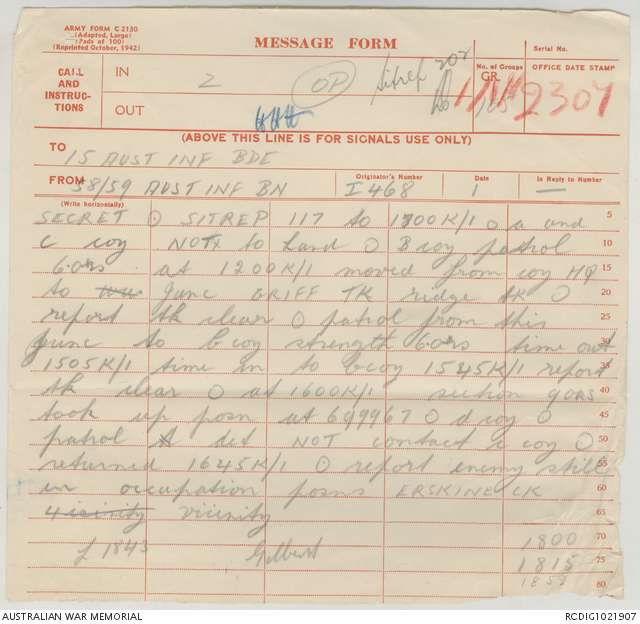 ARMY FORM C 2130
(Adapted, Large)
(Pads of 100)
(Reprinted October, 1942)
MESSAGE FORM
Serial No.
CALL AND INSTRUCTIONS
IN
Z
OP
Sitrep 202
No. of Groups
GR.
OFFICE DATE STAMP
2307
OUT
(ABOVE THIS LINE IS FOR SIGNALS USE ONLY)
TO
15 AUST INF BDE
FROM
58/59 AUST INF BN
Originator's Number
I 468
Date
1
In Reply to Number
—
(Write horizontally)
SECRET O SITREP 117 to 1700K/1 O a and 5
c coy NOT to hand O B coy patrol 10
6 ors at 1200K/1 moved from coy HQ 15
to junc GRIFF TK ridge tk O 20
report tk clear O patrol from this 25
junc to b coy strength 6 ors time out 30
1505K/1 time in to b coy 1545K/1 report 35
tk clear O at 1600K/1 section 9 ors 40
took up posn at 699967 O d coy O 45
patrol did NOT contact c coy O 50
returned 1645K/1 O report enemy still 55
in occupation posns ERSKINE CK 60
vicinity vicinity 65
1843 Gilbert 1800 70
1815 75
1857 80
AUSTRALIAN WAR MEMORIAL
RCDIG1021907